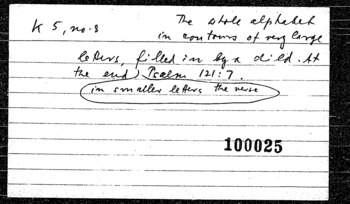 K 5, no. 8 The whole alphabet
in contours of very large
letters, filled in by a child. At
the end Psalm 121:7.
in smaller letters the verse
100025